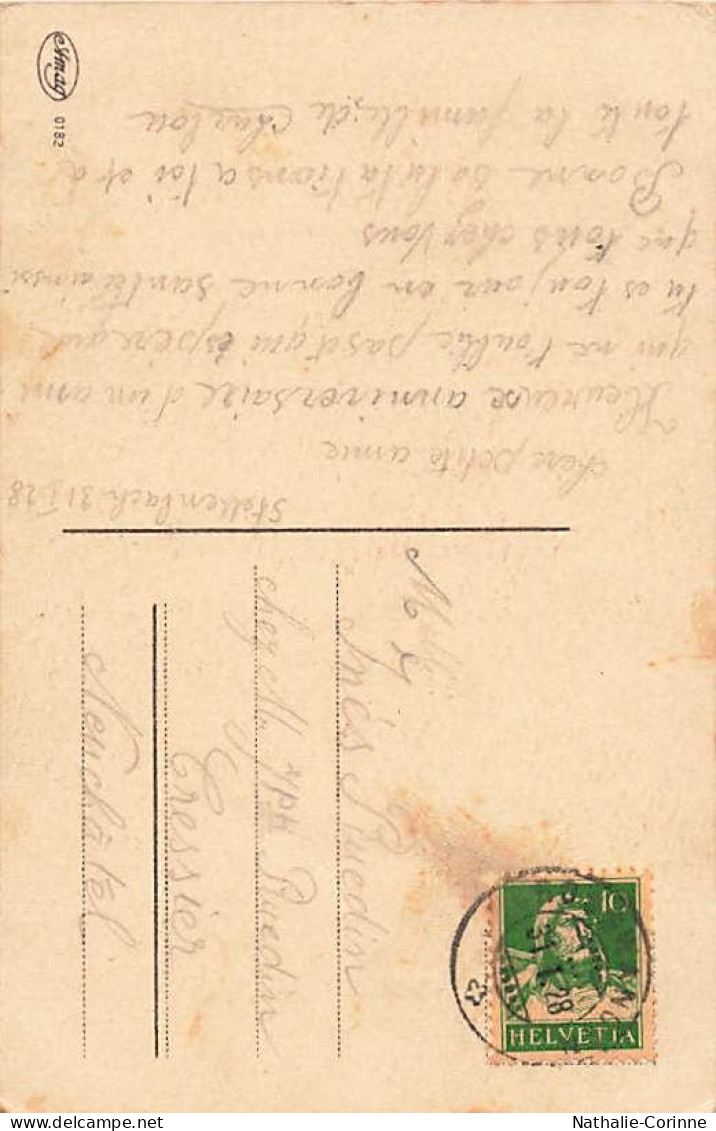 Stettenbach 31 I 28
chère petite amie
Heureuse anniversaire d'un ami
qui ne t'oublie pas et qui espère que
tu es toujour en bonne santé ainsi
que tous chez vous
Bonne salutations a toi et a
toute la famille, de Charlou
Mlle
Inès Ruedin
chez M. Jph Ruedin
Cressier
Neuchâtel
amag 0182
10
31. I. 28
HELVETIA
Nathalie-Corinne